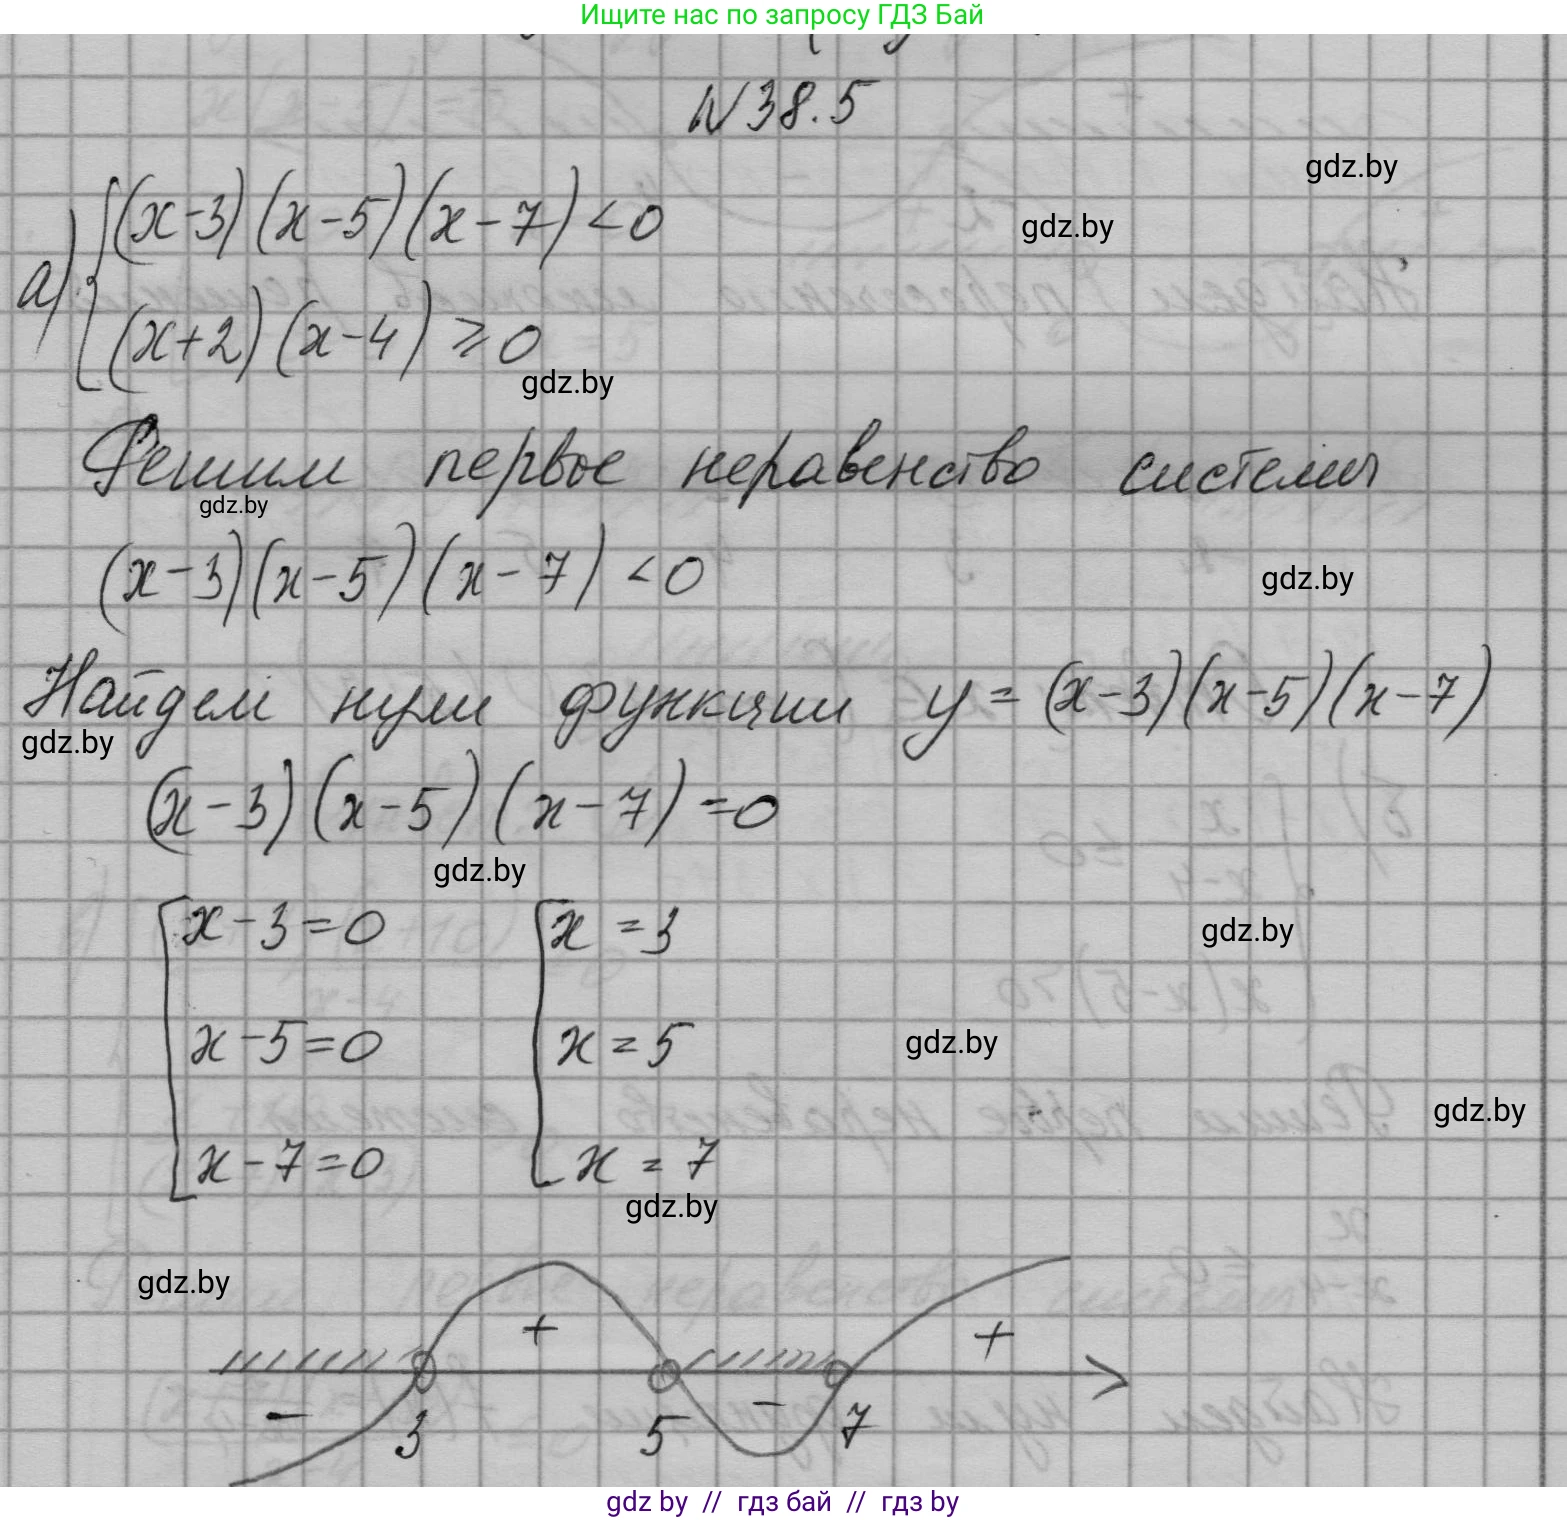 Ищите нас по запросу ГДЗ Бай
N 38.5
gdz.by
gdz.by
а) { (x-3)(x-5)(x-7) < 0
(x+2)(x-4) ≥ 0
gdz.by
Решим первое неравенство системы
gdz.by
(x-3)(x-5)(x-7) < 0
gdz.by
Найдем нули функции y = (x-3)(x-5)(x-7)
gdz.by
(x-3)(x-5)(x-7) = 0
gdz.by
[ x-3=0 [ x=3
gdz.by
x-5=0 x=5
gdz.by
gdz.by
x-7=0 x=7
gdz.by
gdz.by
+ +
- 3 5 - 7
gdz by // гдз бай // гдз by